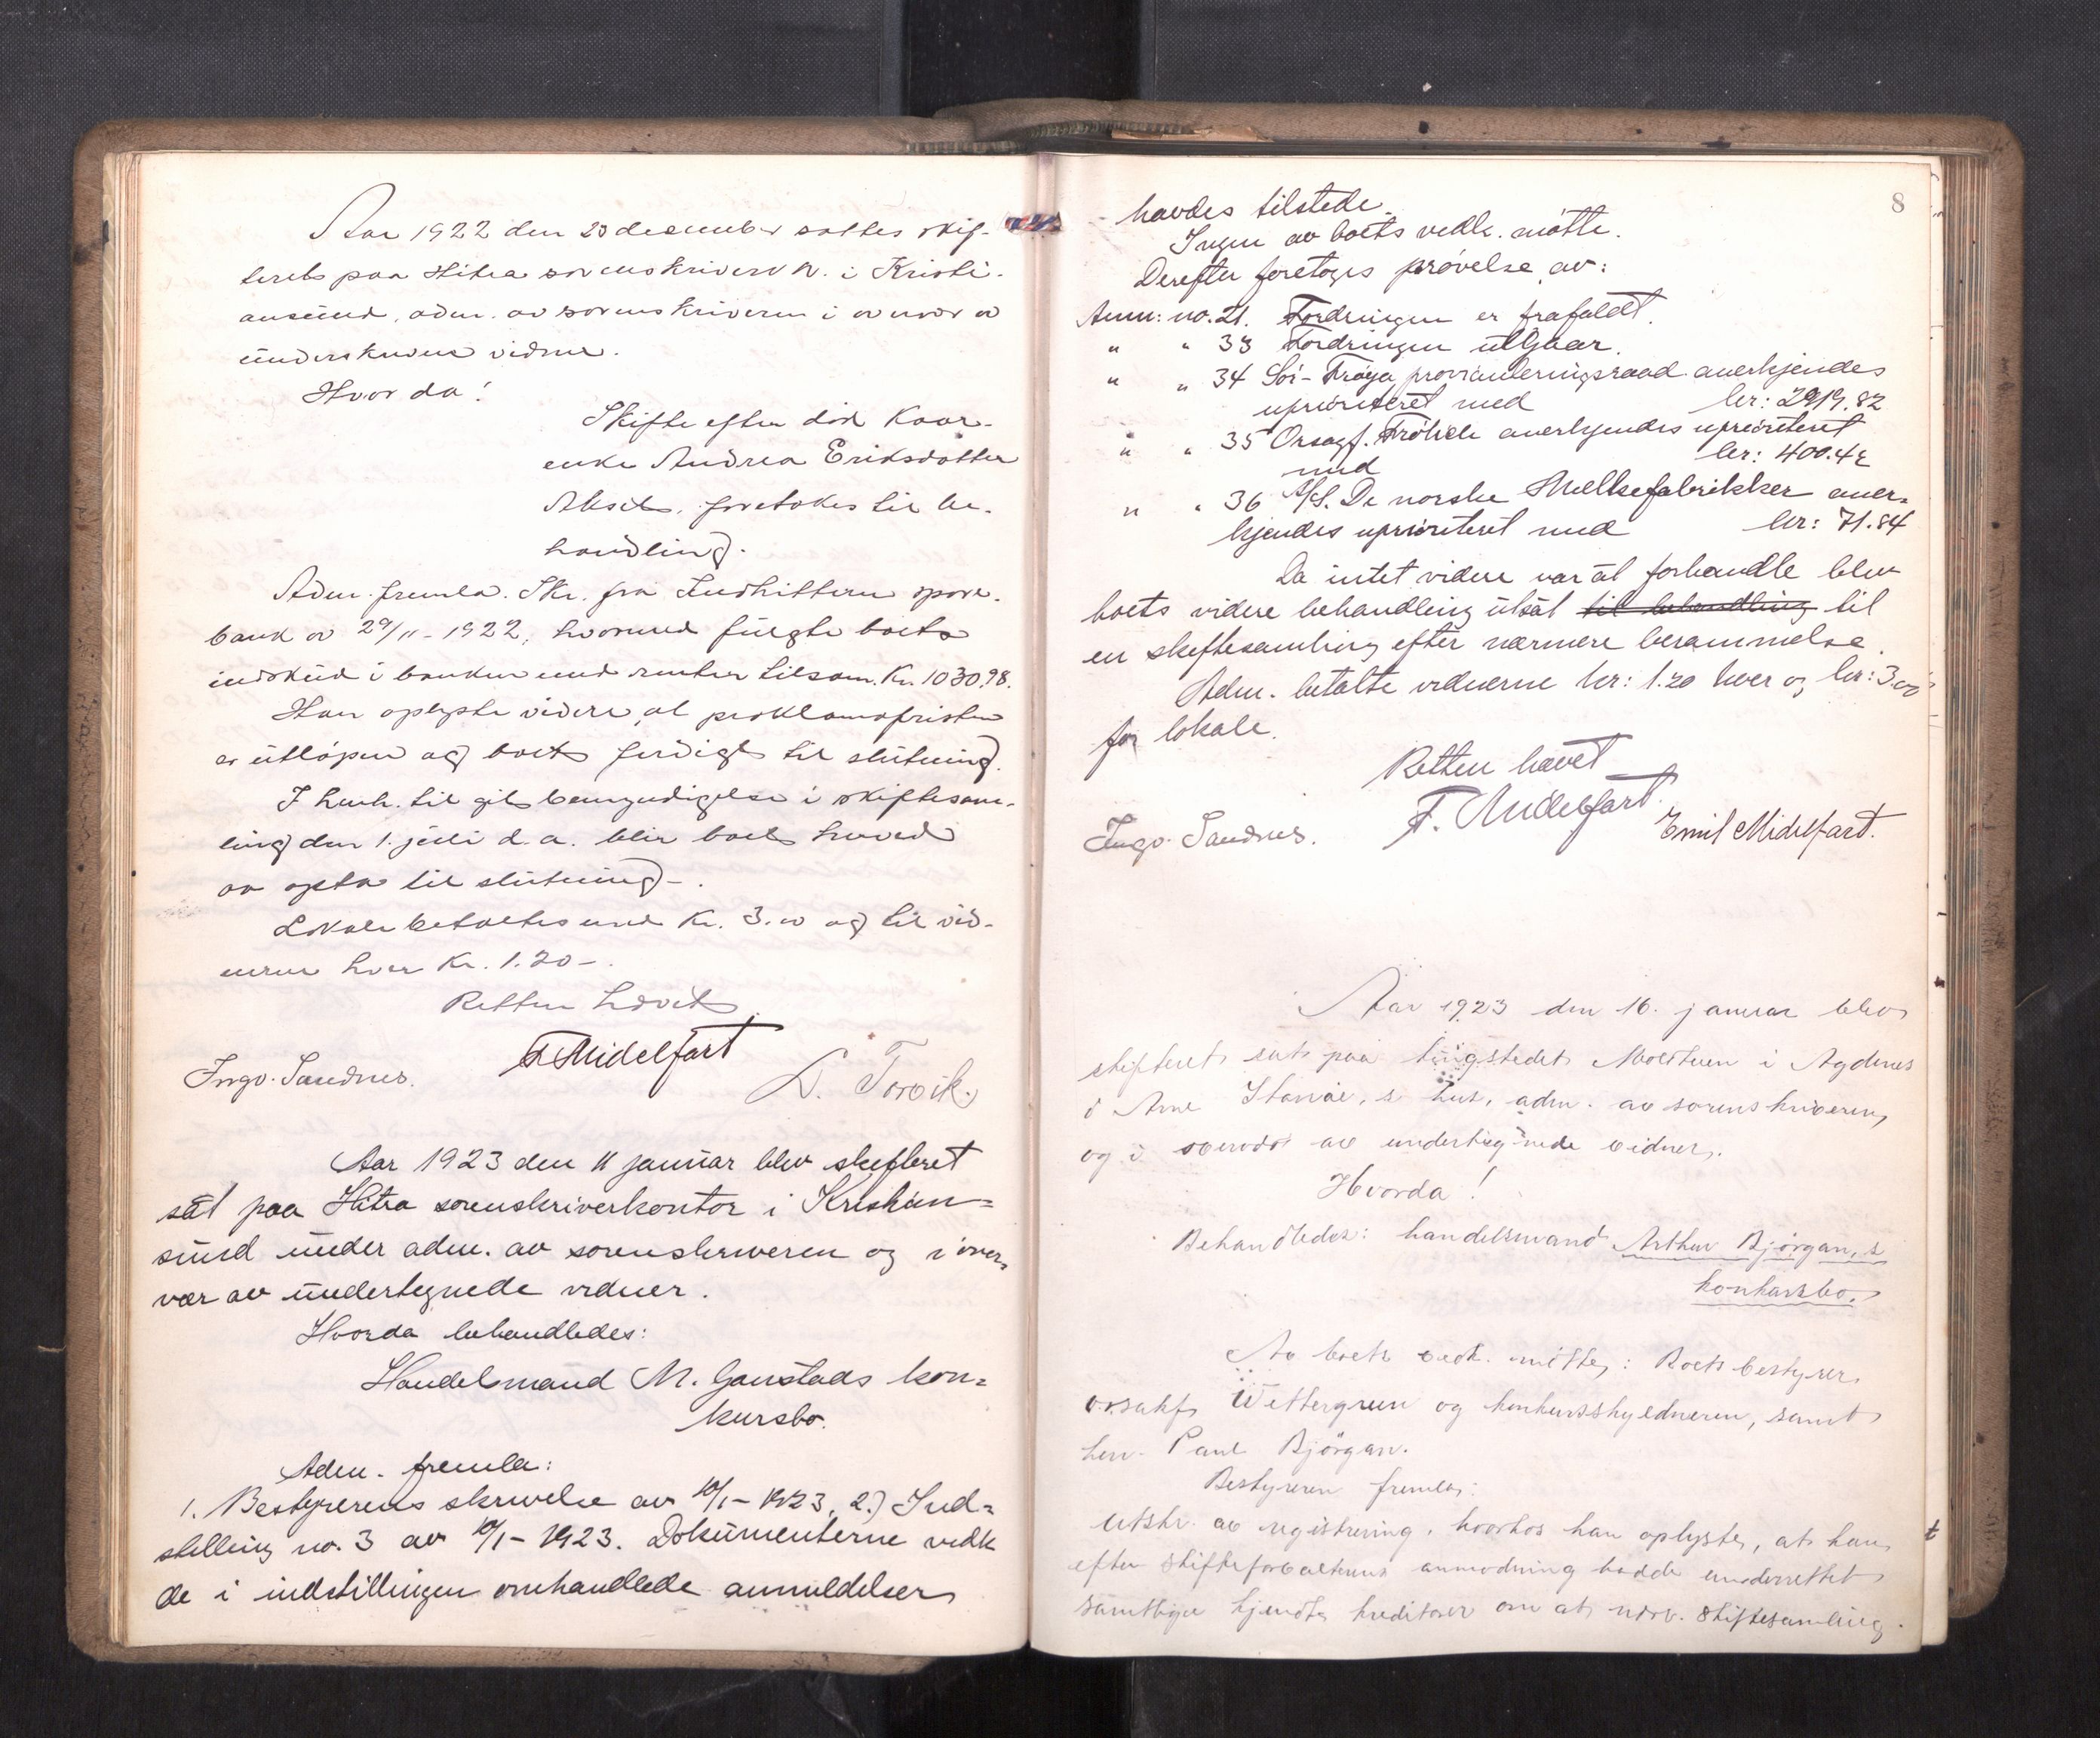 Aar 1922 den 23 december sattes skif-
teret paa Hitra sorenskriverk. i Kristi-
ansund, adm. av sorenskriveren i overvær av
underskrevne vidner.
Hvorda!
Skifte efter død Kaar-
enke Andrea Eriksdatter
foretokes til be-
handling.
Adm. fremla. Skr. fra Indhitteren spare-
bank av 29/11-1922, hvormed fulgte boets
indskud i banken med renter tilsam. Kr. 1030.98.
Han oplyste videre, at proklamafristen
er utløpen og boet færdigt til slutning.
I henh. til git bemyndigelse i skiftesam-
ling den 1. juli d.a. blir boet hermed
at opta til slutning.
Lokale betaltes med Kr. 3.00 og til vid-
nerne hver Kr. 1.20-.
Retten hævet
Ingv. Sandnes. F. Midelfart L. Torvik.
Aar 1923 den 11 januar blev skifteret
sat paa Hitra sorenskriverkontor i Kristian=
sund under adm. av sorenskriveren og i over,
vær av undertegnede vidner.
Hvorda behandledes:
Handelsmand M. Gaustads kon=
kursbo.
Adm. fremla:
1. Bestyrerens skrivelse av 10/1-1923, 2.) Ind=
stilling no. 3 av 10/1-1923. Dokumenterne vedk
de i indstillingen omhandlede anmeldelser
8
havdes tilstede.
Ingen av boets vedk. møtte.
Derefter foretoges prøvelse av:
Anm: no. 21. Fordringen er frafaldt.
" " 33 Fordringen utgaar.
" " 34 Sør-Frøya provianteringsraad anerkjendes
uprioriteret med kr: 2919.82
" " 35 Orsagf. Frøhole anerkjendes uprioriteret
med kr: 400.42
" " 36 A/S. De norske Melkefabrikker aner-
kjendes uprioriteret med kr: 71.84
Da intet videre var at forhandle blev
boets videre behandling utsat til behandling til
en skiftesamling efter nærmere berammelse.
Adm. betalte vidnerne kr: 1.20 hver og kr: 3.00
for lokale.
Retten hævet
Ingv. Sandnes. F. Midelfart. Emil Midelfart.
Aar 1923 den 16. januar blev
skifteret sat paa tingstedet Moltuen i Agdenes
i Arne s hus, adm. av sorenskriveren,
og i overvær av undertegnede vidner.
Hvorda!
Behandledes: handelsmand Arthur Bjørgan,s
konkursbo.
Av boets vedk. møtte: Boets bestyrer,
o.r.sakf. Wettergreen og konkursskyldneren, samt
hr. Paul Bjørgan.
Bestyreren fremla:
Utskr. av registrering, hvorhos han oplyste, at han
efter skifteforvalterens anmodning hadde underrettet
samtlige kjendte kreditorer om at nærv. skiftesamling
t